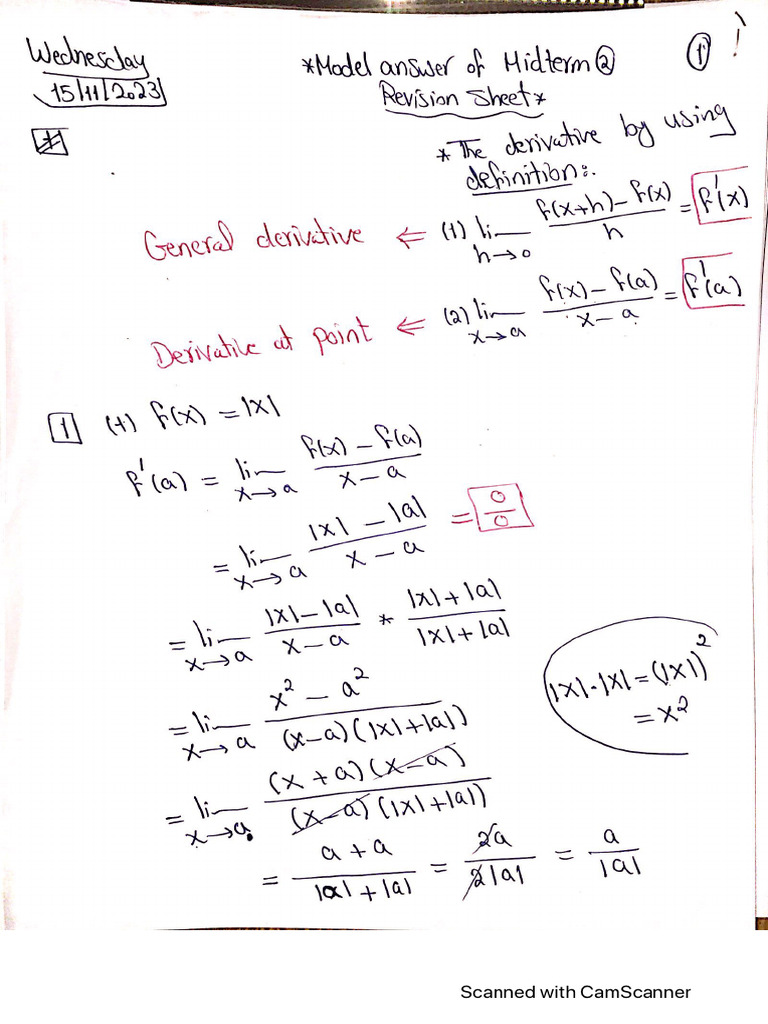 Wednesday
15/11/2023
*Model answer of Midterm ②
Revision Sheet*
①
* The derivative by using
definition:.
General derivative ⇐ (1) lim h→0 f(x+h) - f(x) / h = f'(x)
Derivative at point ⇐ (2) lim x→a f(x) - f(a) / x - a = f'(a)
1 (+) f(x) = |x|
f'(a) = lim x→a f(x) - f(a) / x - a
= lim x→a |x| - |a| / x - a = 0/0
= lim x→a |x| - |a| / x - a * |x| + |a| / |x| + |a|
= lim x→a x² - a² / (x-a)(|x|+|a|)
|x|·|x| = (|x|)²
= x²
= lim x→a (x + a)(x - a) / (x - a)(|x|+|a|)
= a + a / |a| + |a| = 2a / 2|a| = a / |a|
Scanned with CamScanner